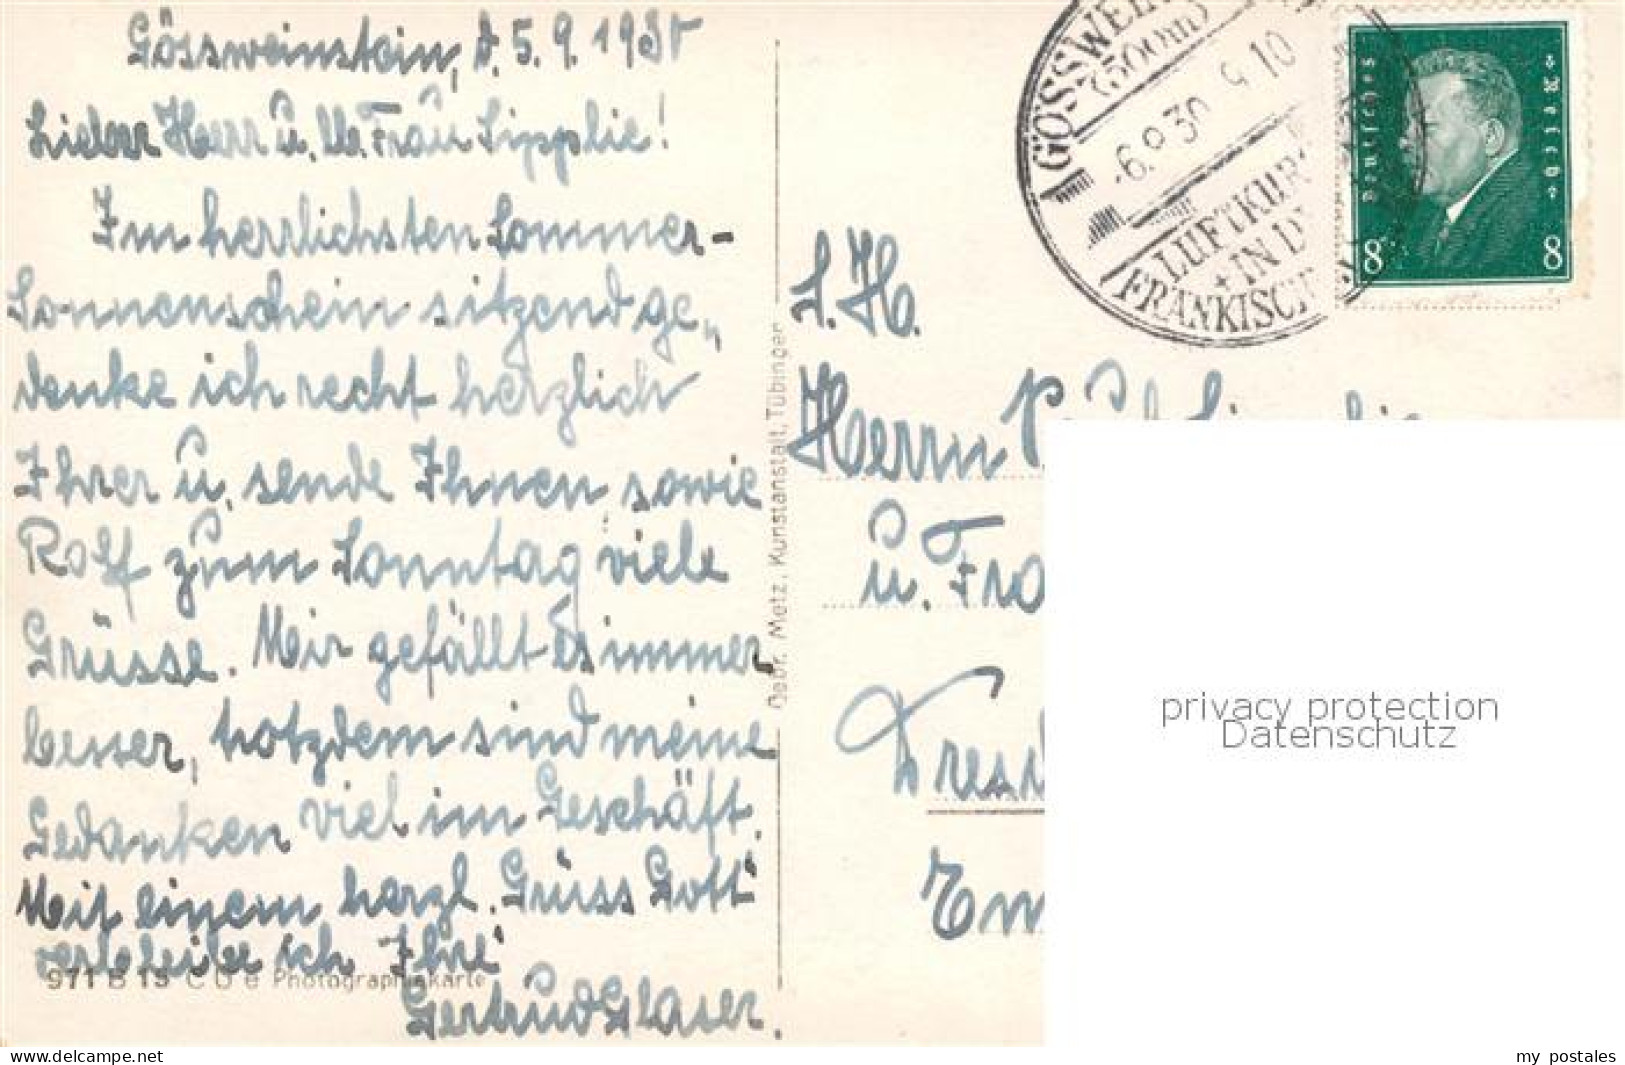 Gössweinstein, d. 5. 9. 1930
Lieber Herr u. lb. Frau Sipplie!
Im herrlichsten Sommer-
Sonnenschein sitzend ge„
denke ich recht herzlich
Ihrer u. sende Ihnen sowie
Rolf zum Sonntag viele
Grüsse. Mir gefällt es immer
besser, trotzdem sind meine
Gedanken viel im Geschäft.
Mit einem herzl. "Grüss Gott"
verbleibe ich Ihre
Gertrud Glaser.
971 B 19 C U e Photographiekarte
Gebr. Metz, Kunstanstalt, Tübingen
GÖSSWEIN
(500m)
-6.9.30 9-10
LUFTKUR
+ IN D
FRÄNKISCH
Deutsches Reich
8 8
S. H.
Herrn
u. Fra
Dresd
Em
privacy protection
Datenschutz
www.delcampe.net
my_postales